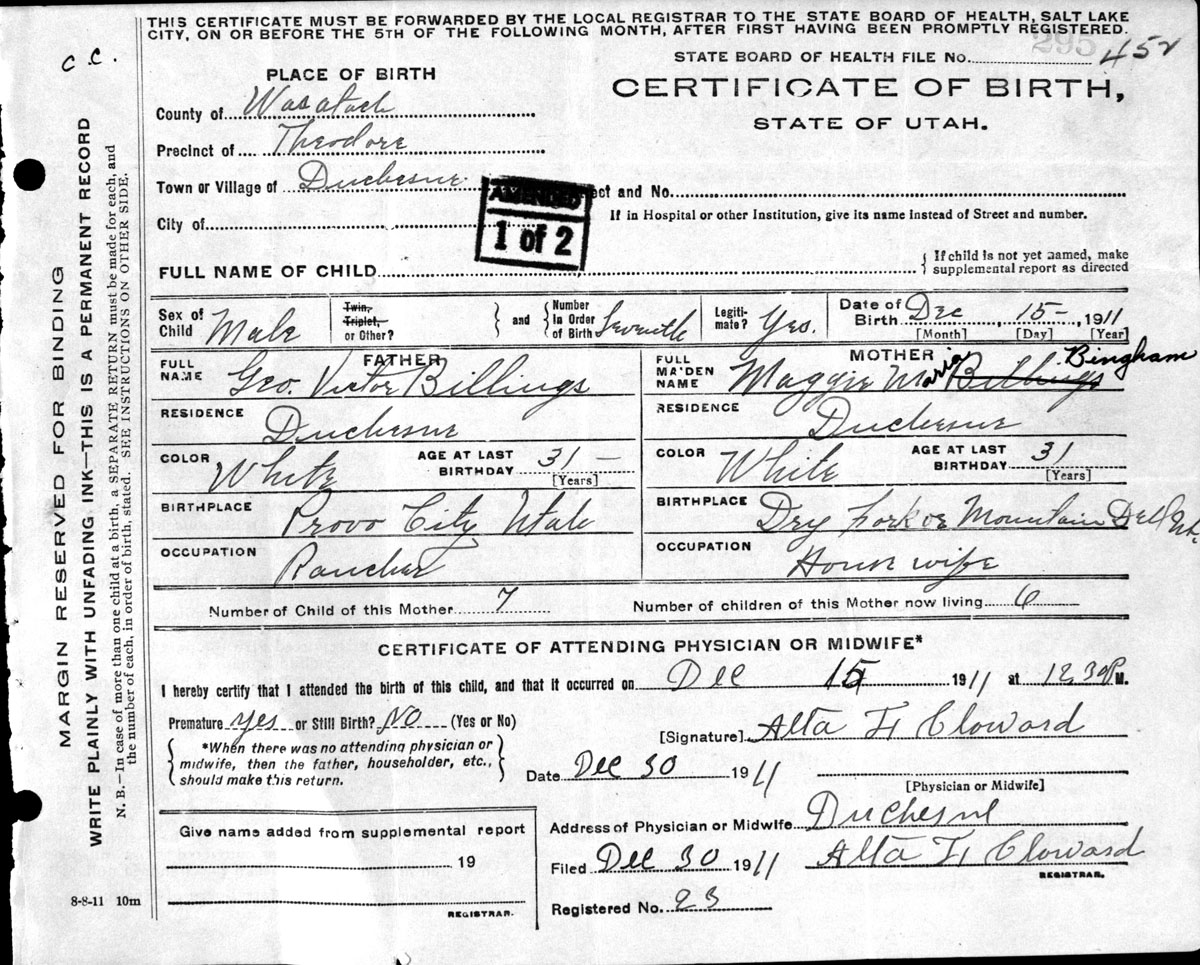 THIS CERTIFICATE MUST BE FORWARDED BY THE LOCAL REGISTRAR TO THE STATE BOARD OF HEALTH, SALT LAKE
CITY, ON OR BEFORE THE 5TH OF THE FOLLOWING MONTH, AFTER FIRST HAVING BEEN PROMPTLY REGISTERED.
295
C C.
STATE BOARD OF HEALTH FILE No. 452
PLACE OF BIRTH
CERTIFICATE OF BIRTH,
STATE OF UTAH.
County of Wasatach
Precinct of Theodore
Town or Village of Duchesne
AMENDED
1 of 2
ect and No.
City of
If in Hospital or other Institution, give its name instead of Street and number.
FULL NAME OF CHILD
{ If child is not yet named, make
supplemental report as directed
Sex of Child Male
Twin, Triplet, or Other?
and
Number in Order of Birth Seventh
Legiti-mate? Yes.
Date of Birth Dec 15-, 1911
[Month] [Day] [Year]
FATHER
FULL NAME Geo. Victor Billings
MOTHER
FULL MAIDEN NAME Maggie Maria Billings Bingham
RESIDENCE Duchesne
RESIDENCE Duchesne
COLOR White AGE AT LAST BIRTHDAY 31 - [Years]
COLOR White AGE AT LAST BIRTHDAY 31 [Years]
BIRTHPLACE Provo City Utah
BIRTHPLACE Dry Fork or Mountain Dell
OCCUPATION Rancher
OCCUPATION House wife
Number of Child of this Mother 7 Number of children of this Mother now living 6
CERTIFICATE OF ATTENDING PHYSICIAN OR MIDWIFE*
I hereby certify that I attended the birth of this child, and that it occurred on Dec 15 1911 at 12,30 P.M.
Premature yes or Still Birth? NO (Yes or No)
[Signature] Alta H Cloward
*When there was no attending physician or
midwife, then the father, householder, etc.,
should make this return.
Date Dec 30 1911
[Physician or Midwife]
Give name added from supplemental report
19
REGISTRAR.
Address of Physician or Midwife Duchesne
Filed Dec 30 1911 Alta H Cloward
REGISTRAR.
Registered No. 23
8-8-11 10m
MARGIN RESERVED FOR BINDING
WRITE PLAINLY WITH UNFADING INK—THIS IS A PERMANENT RECORD
N. B.—In case of more than one child at a birth, a SEPARATE RETURN must be made for each, and
the number of each, in order of birth, stated. SEE INSTRUCTIONS ON OTHER SIDE.